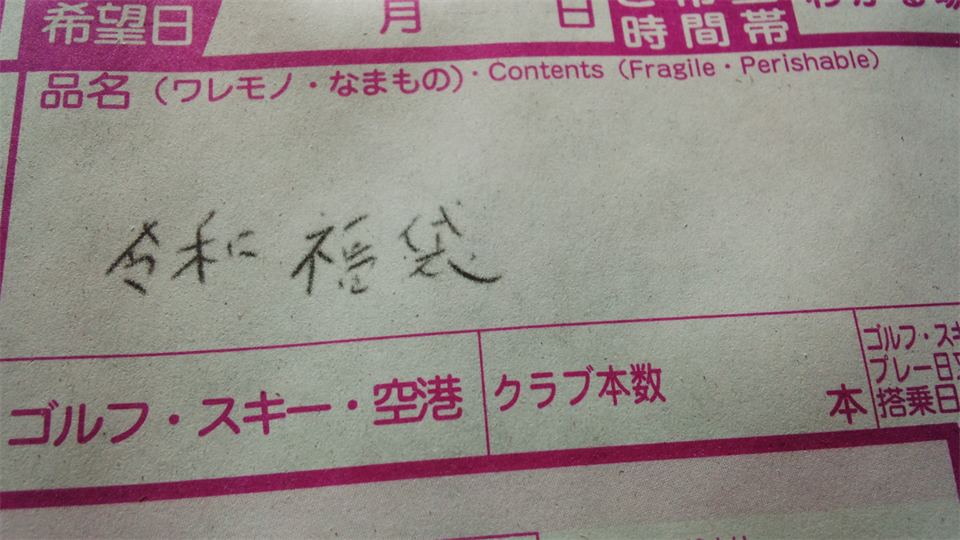 希望日 月 日
時間帯
品名（ワレモノ・なまもの）・Contents（Fragile・Perishable）
令和 福袋
ゴルフ・スキー・空港 クラブ本数 本
ゴルフ・スキ
プレー日
搭乗日